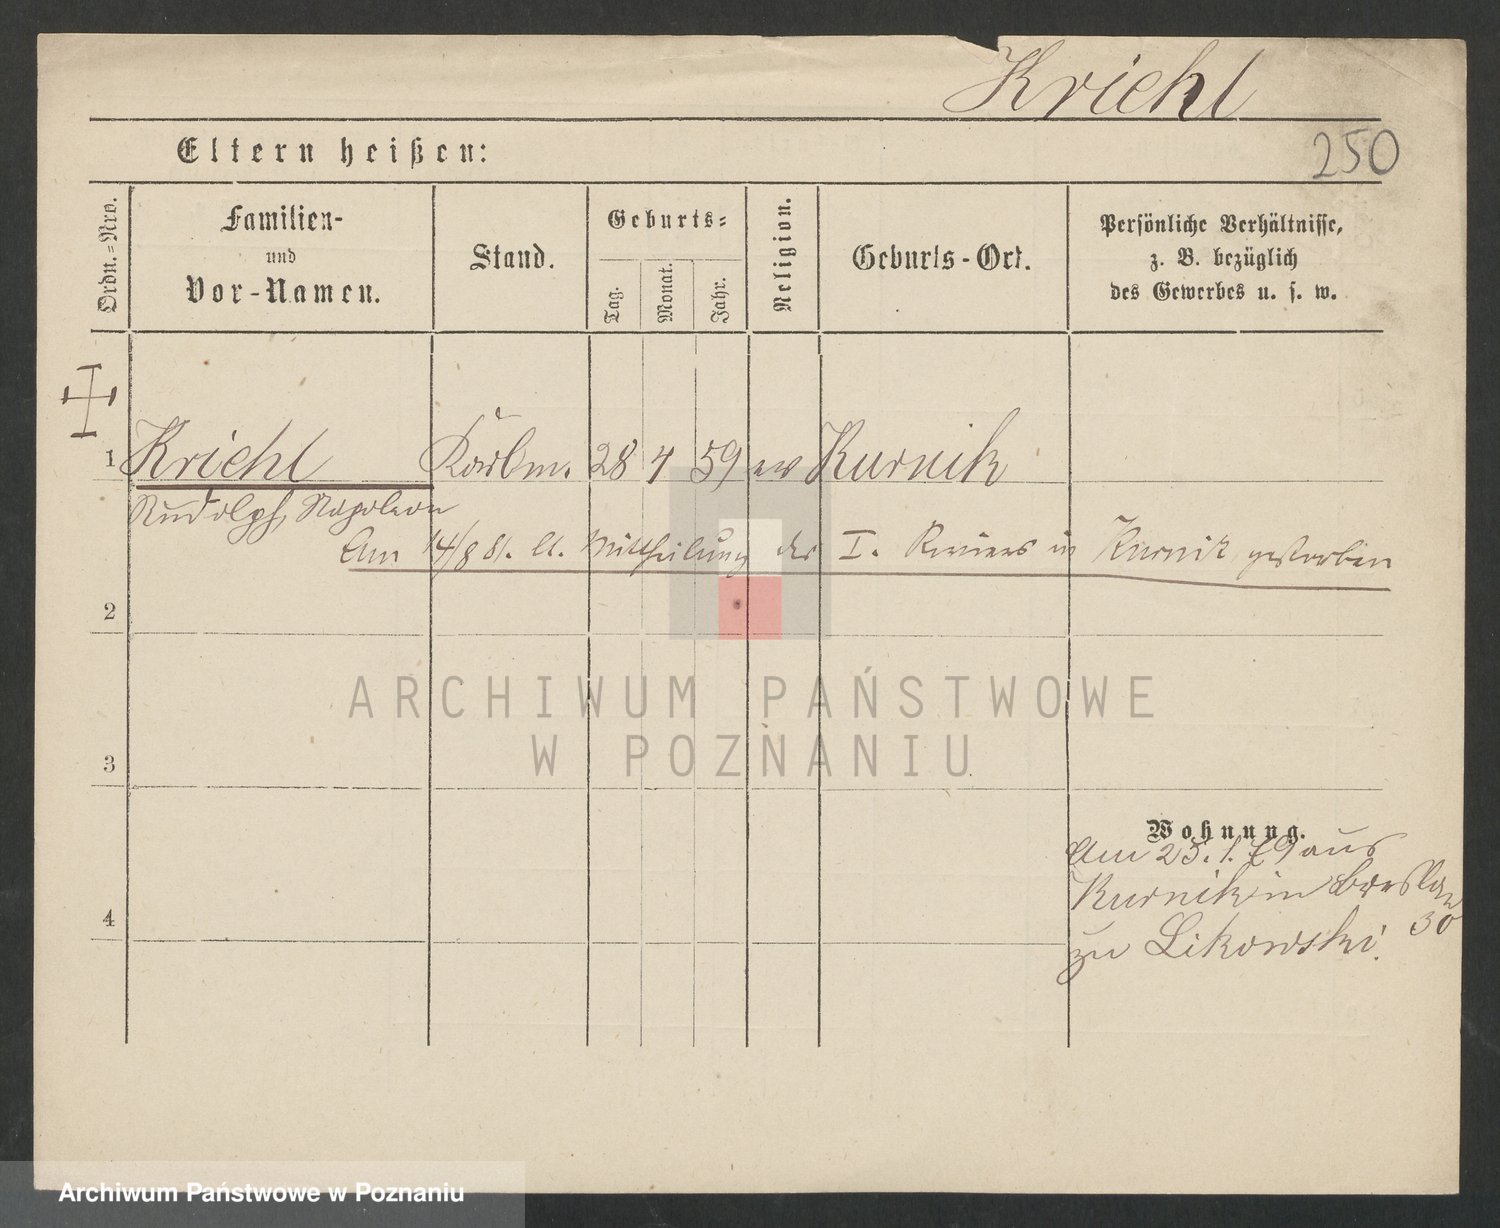 Kriehl
250
Eltern heißen:
Ordn.=Nro.
Familien-
und
Vor-Namen.
Stand.
Geburts=
Tag.
Monat.
Jahr.
Religion.
Geburts-Ort.
Persönliche Verhältnisse,
z. B. bezüglich
des Gewerbes u. s. w.
1 Kriehl Korbm. 28 4 59 ev Kurnik
Rudolph, Napoleon
Am 14/8 81. lt. Mittheilung des I. Reviers in Kurnik gestorben
2
ARCHIWUM PAŃSTWOWE
W POZNANIU
3
Wohnung.
Am 25. 1. 79 aus
Kurnik in Breslau
30
zu Likowski.
4
Archiwum Państwowe w Poznaniu